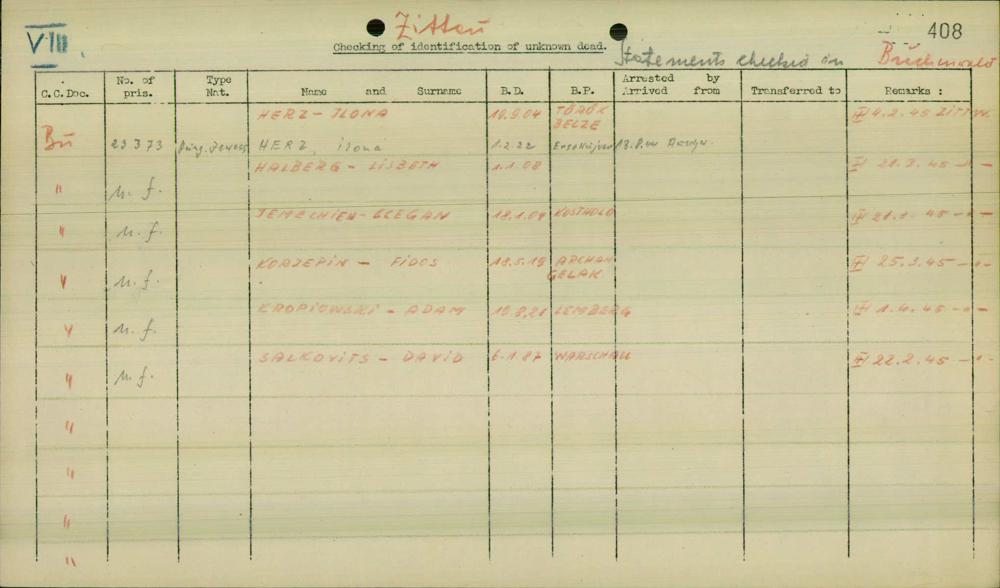 VIII
Zittau
408
Checking of identification of unknown dead.
Statements checked in Buchenwald
C.C.Doc. No. of pris. Type Nat. Name and Surname B.D. B.P. Arrested by Arrived from Transferred to Remarks :
HERZ - ILONA 10.9.04 TÖRÖK BELZE 4.2.45 ZITTAU
Bu 23373 HERZ, ilona 1.2.22
HALBERG - LISBETH 1.1.08 45 - " -
" n. f.
18.1.04 45 - " -
" n. f.
KORZEPIN - FIDOS 18.5.19 ARCHAN GELAK 25.3.45 - " -
" n. f.
KROPIOWSKI - ADAM LEMBERG 1.4.45 - " -
" n. f.
SALKOVITS - DAVID 6.1.87 WARSCHAU 22.2.45 - " -
" n. f.
"
"
"
"